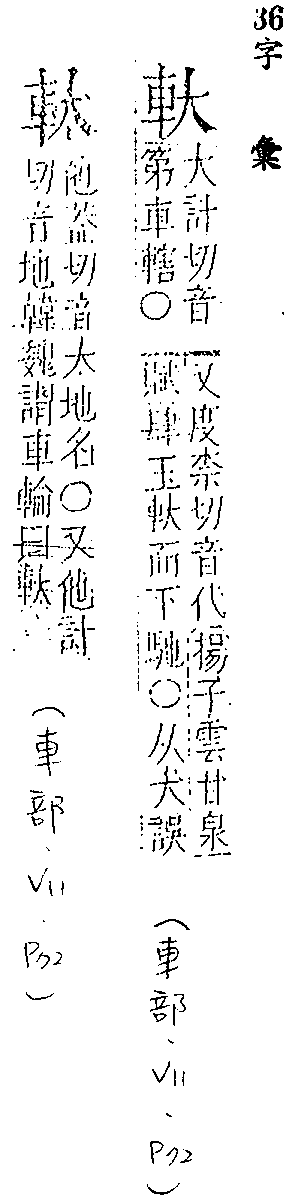 36字 彙
軑
大計切音
第車轄○
又度柰切音代揚子雲甘泉
賦肆玉軑而下馳○从犬誤
(車部、V11、P72)
他盖切音太地名○又他計
切音地韓魏謂車輪曰軑
(車部、V11、P72)